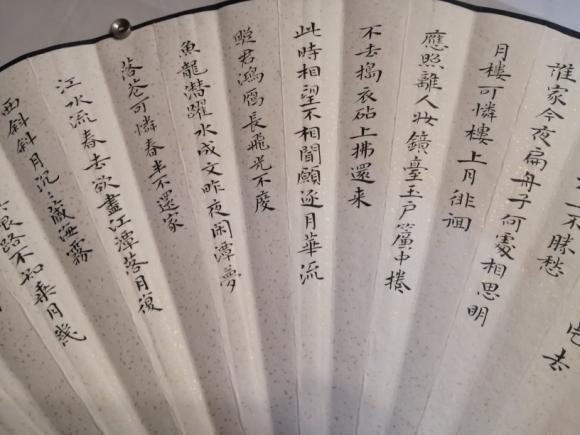 去
上不勝愁
誰家今夜扁舟子何處相思明
月樓可憐樓上月俳佪
應照離人妝鏡臺玉戶簾中捲
不去搗衣砧上拂還来
此時相望不相聞願逐月華流
照君鴻鴈長飛光不度
魚龍潛躍水成文昨夜閑潭夢
落花可憐春半不還家
江水流春去欲盡江潭落月復
西斜斜月沉〻藏海霧
限路不知乘月幾